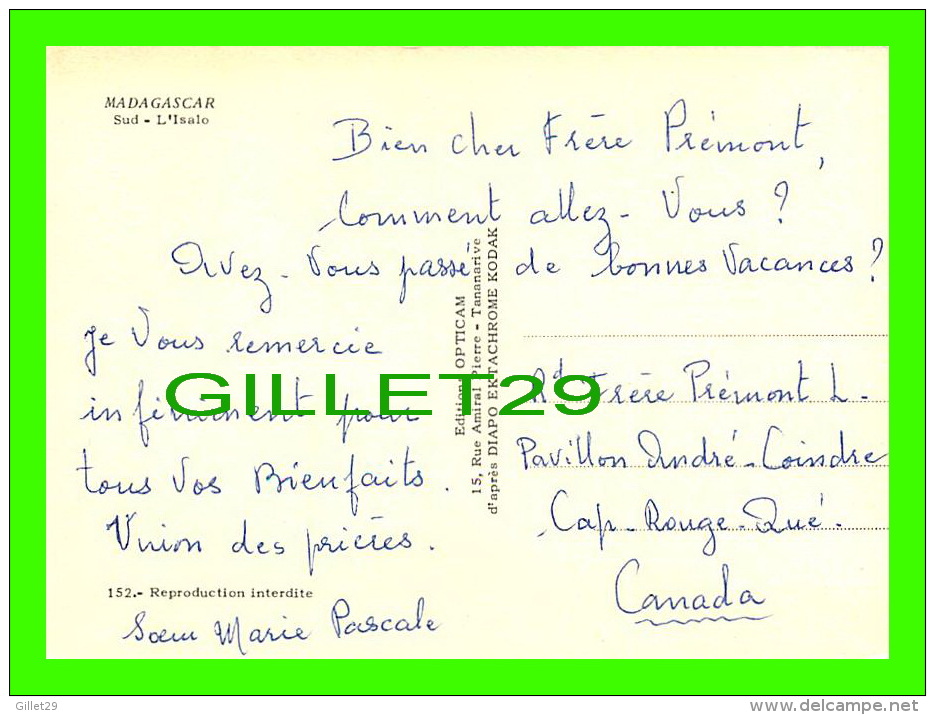 MADAGASCAR
Sud - L'Isalo
Bien cher Frère Prémont,
Comment allez-Vous ?
Avez-Vous passé de bonnes Vacances ?
Je Vous remercie
infiniment pour
tous Vos Bienfaits.
Union des prières.
152.- Reproduction interdite
Sœur Marie Pascale
Editions OPTICAM
15, Rue Amiral Pierre - Tananarive
d'après DIAPO EKTACHROME KODAK
GILLET29
Rd Frère Prémont L.
Pavillon André-Coindre
Cap-Rouge-Qué.
Canada
Gillet29
http://www.delcampe.net